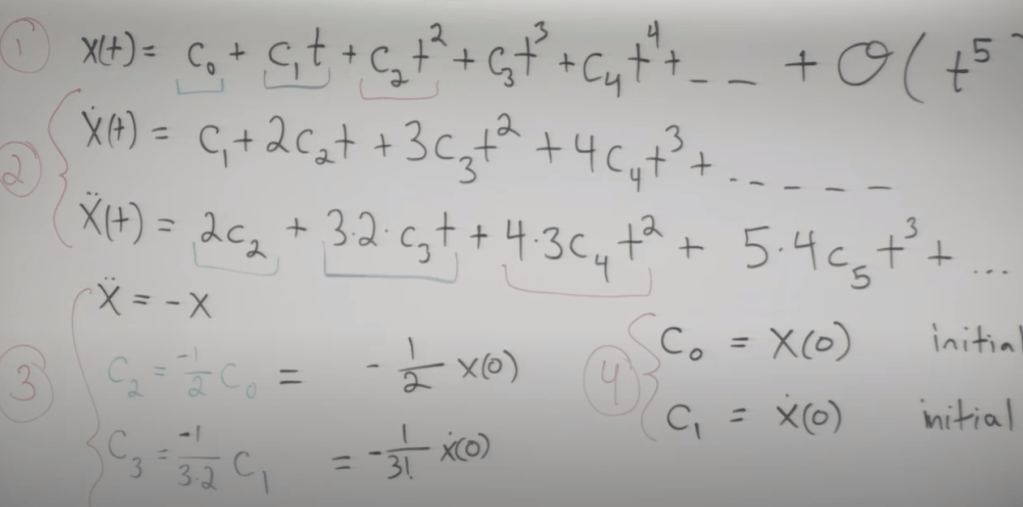 ① x(t) = c₀ + c₁t + c₂t² + c₃t³ + c₄t⁴ + _ _ + O(t⁵
② ẋ(t) = c₁ + 2c₂t + 3c₃t² + 4c₄t³ + - - - - -
ẍ(t) = 2c₂ + 3·2·c₃t + 4·3c₄t² + 5·4c₅t³ + ...
③ ẍ = -x
c₂ = -1/2 c₀ = -1/2 x(0)
c₃ = -1/3·2 c₁ = -1/3! ẋ(0)
④ c₀ = x(0) initial
c₁ = ẋ(0) initial